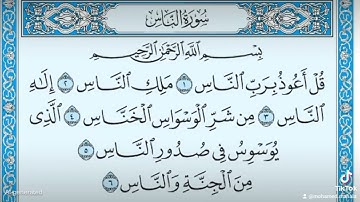 سُورَةُ النَّاسِ
بِسْمِ ٱللَّهِ ٱلرَّحْمَٰنِ ٱلرَّحِيمِ
قُلْ أَعُوذُ بِرَبِّ ٱلنَّاسِ ١ مَلِكِ ٱلنَّاسِ ٢ إِلَٰهِ
ٱلنَّاسِ ٣ مِن شَرِّ ٱلْوَسْوَاسِ ٱلْخَنَّاسِ ٤ ٱلَّذِى
يُوَسْوِسُ فِى صُدُورِ ٱلنَّاسِ ٥
مِنَ ٱلْجِنَّةِ وَٱلنَّاسِ ٦
TikTok